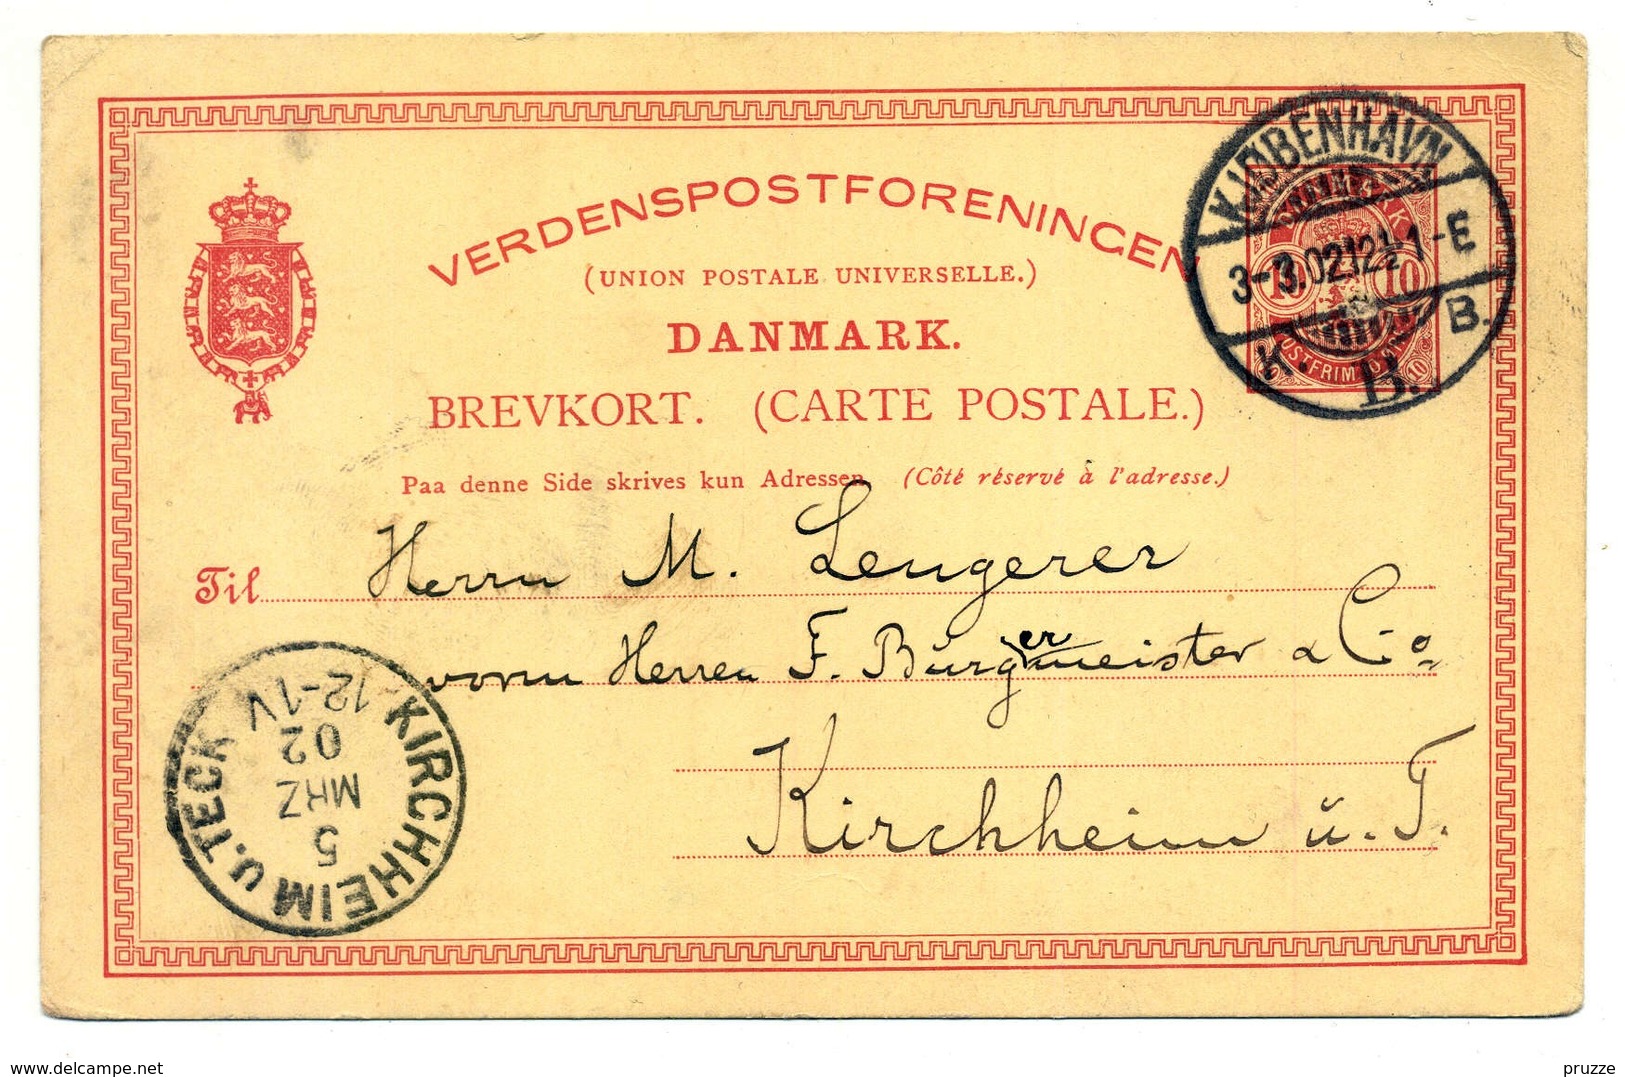 VERDENSPOSTFORENINGEN
(UNION POSTALE UNIVERSELLE.)
DANMARK.
BREVKORT. (CARTE POSTALE.)
Paa denne Side skrives kun Adressen. (Côté réservé à l'adresse.)
KJØBENHAVN
3-3.02 12½-1-E
K. B. B.
10 10
POSTFRIM
10
Til Herrn M. Lengerer
Herren F. Burgermeister & Co
Kirchheim u. T.
KIRCHHEIM U. TECK
5
MRZ
02
12-1V
www.delcampe.net
pruzze